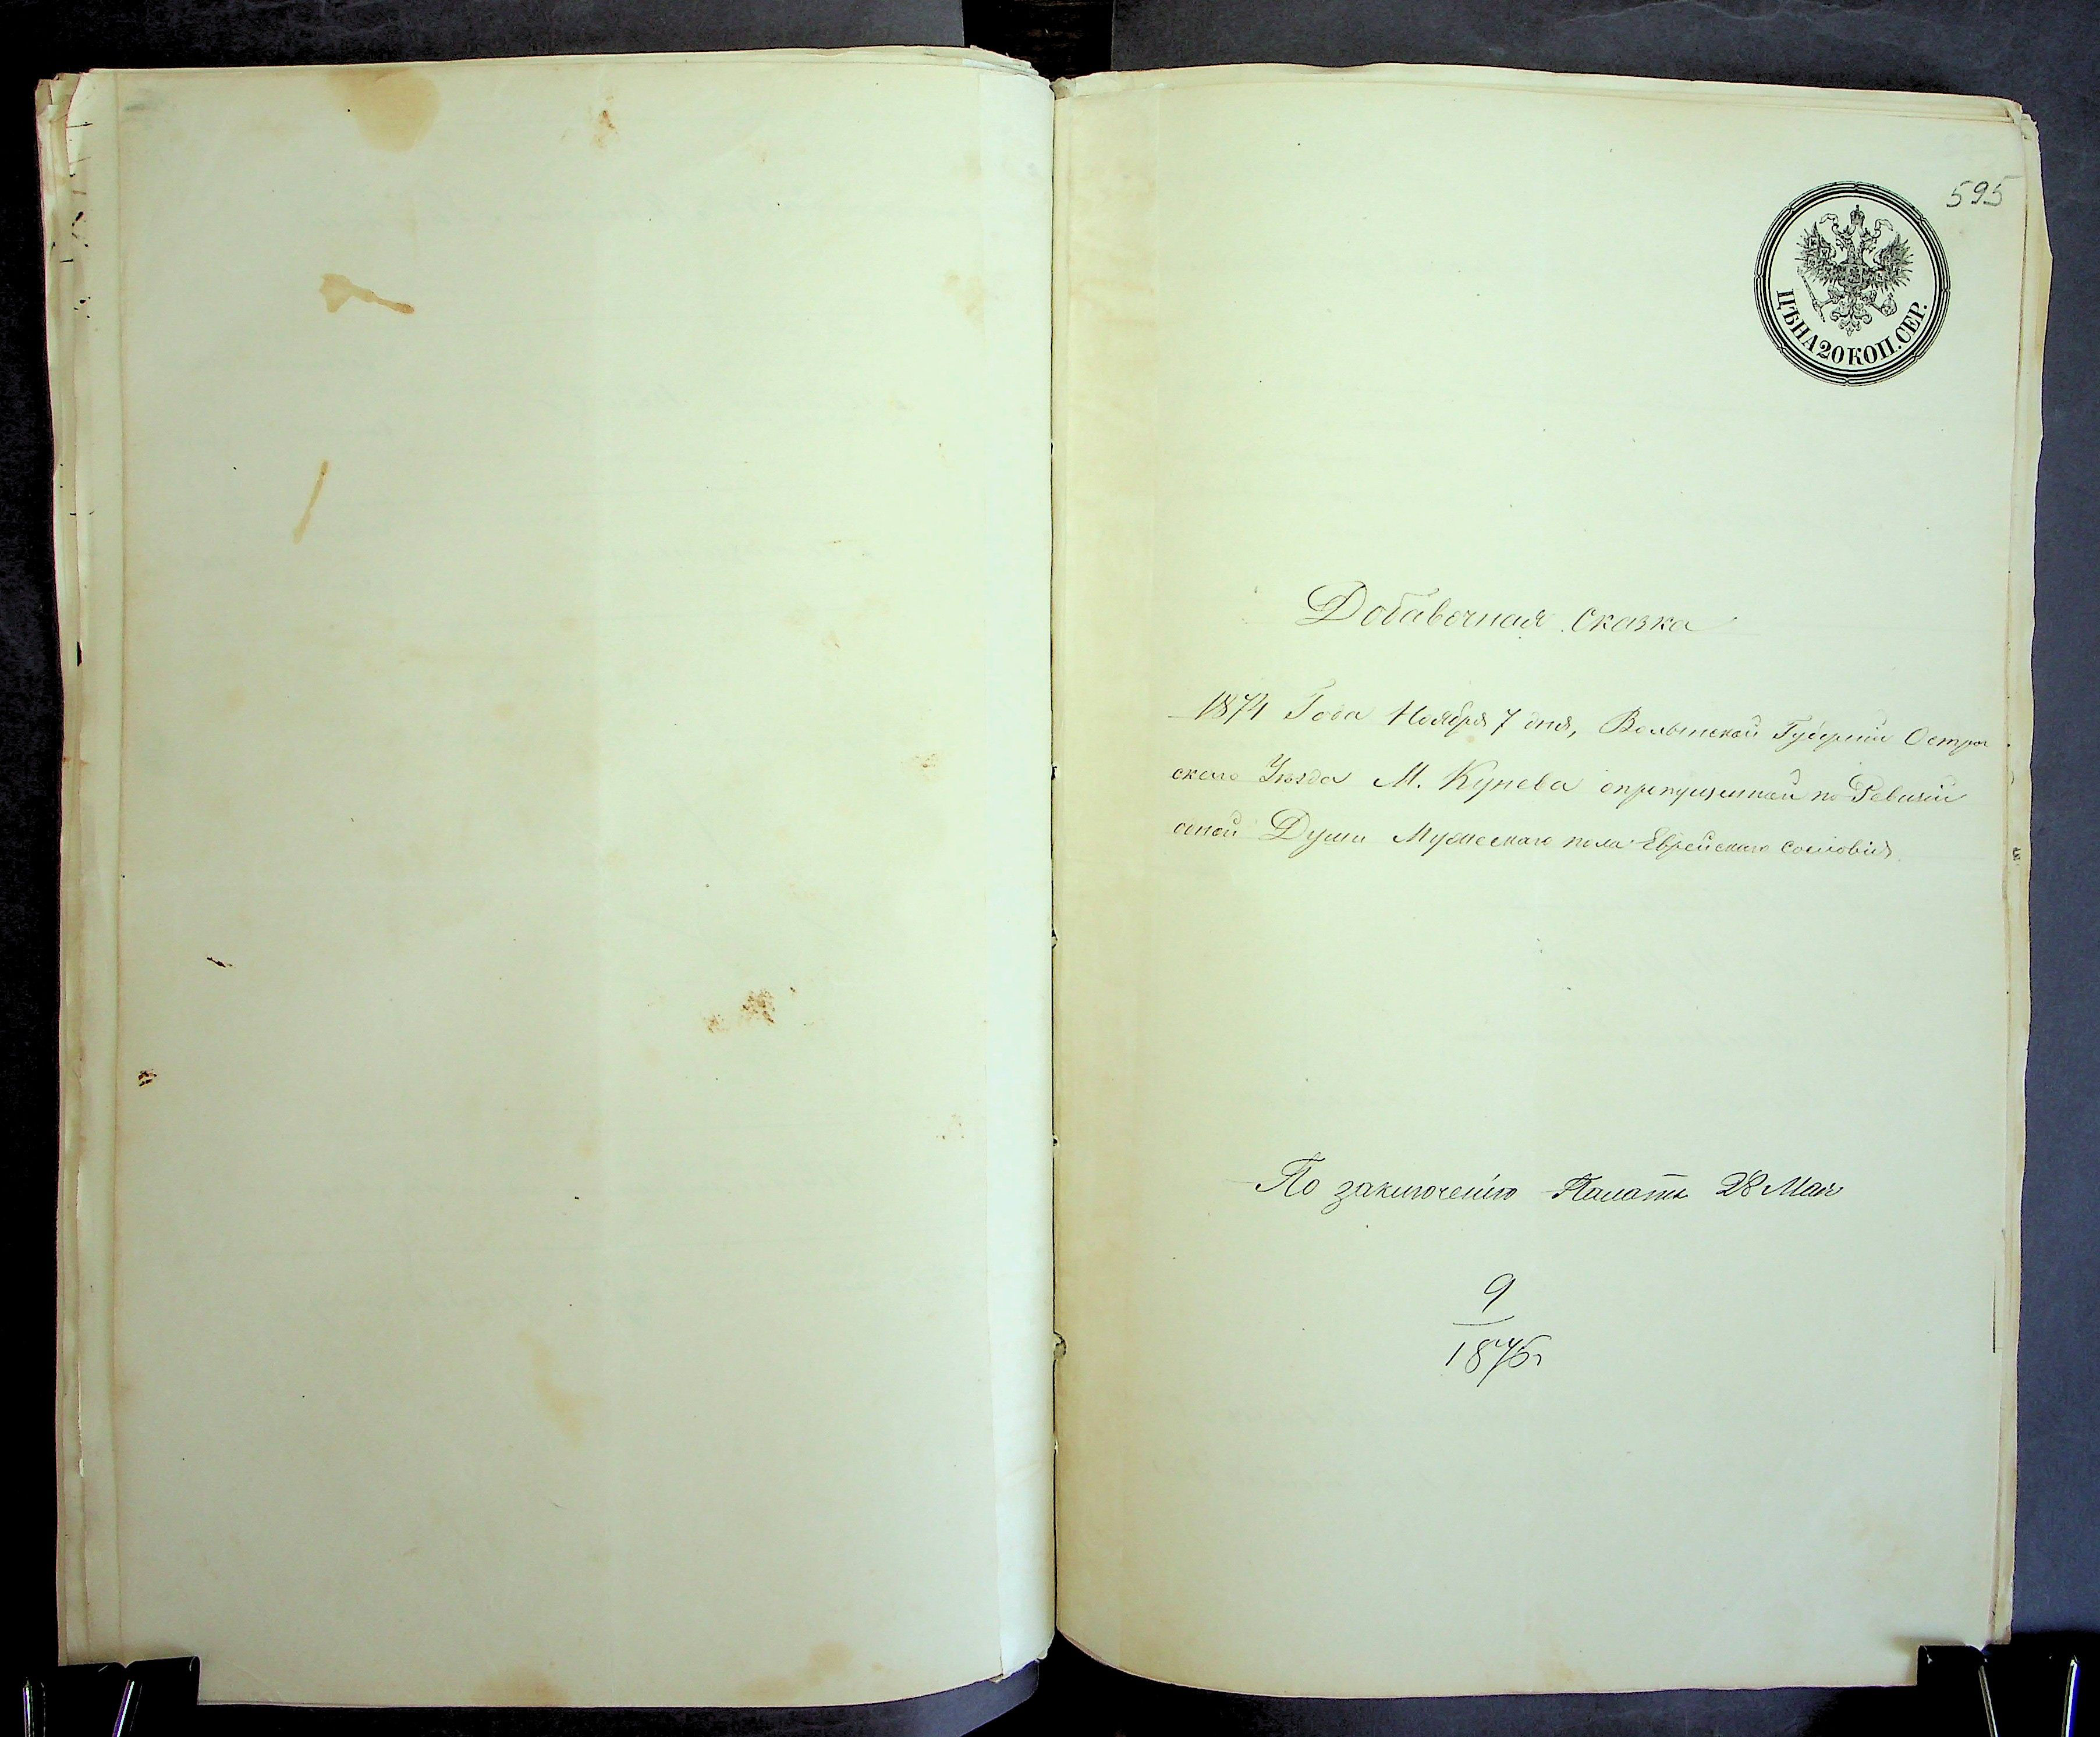 595
ЦѢНА 20 КОП. СЕР.
Добавочная сказка
1874 Года Ноября 7 дня, Волынской Губернiи Остро
скаго Уѣзда М. Кунева опропущенной по Ревизiи
оной Души Мужескаго пола Еврейскаго сословiя
По заключенiю Палаты 28 Мая
9
1875